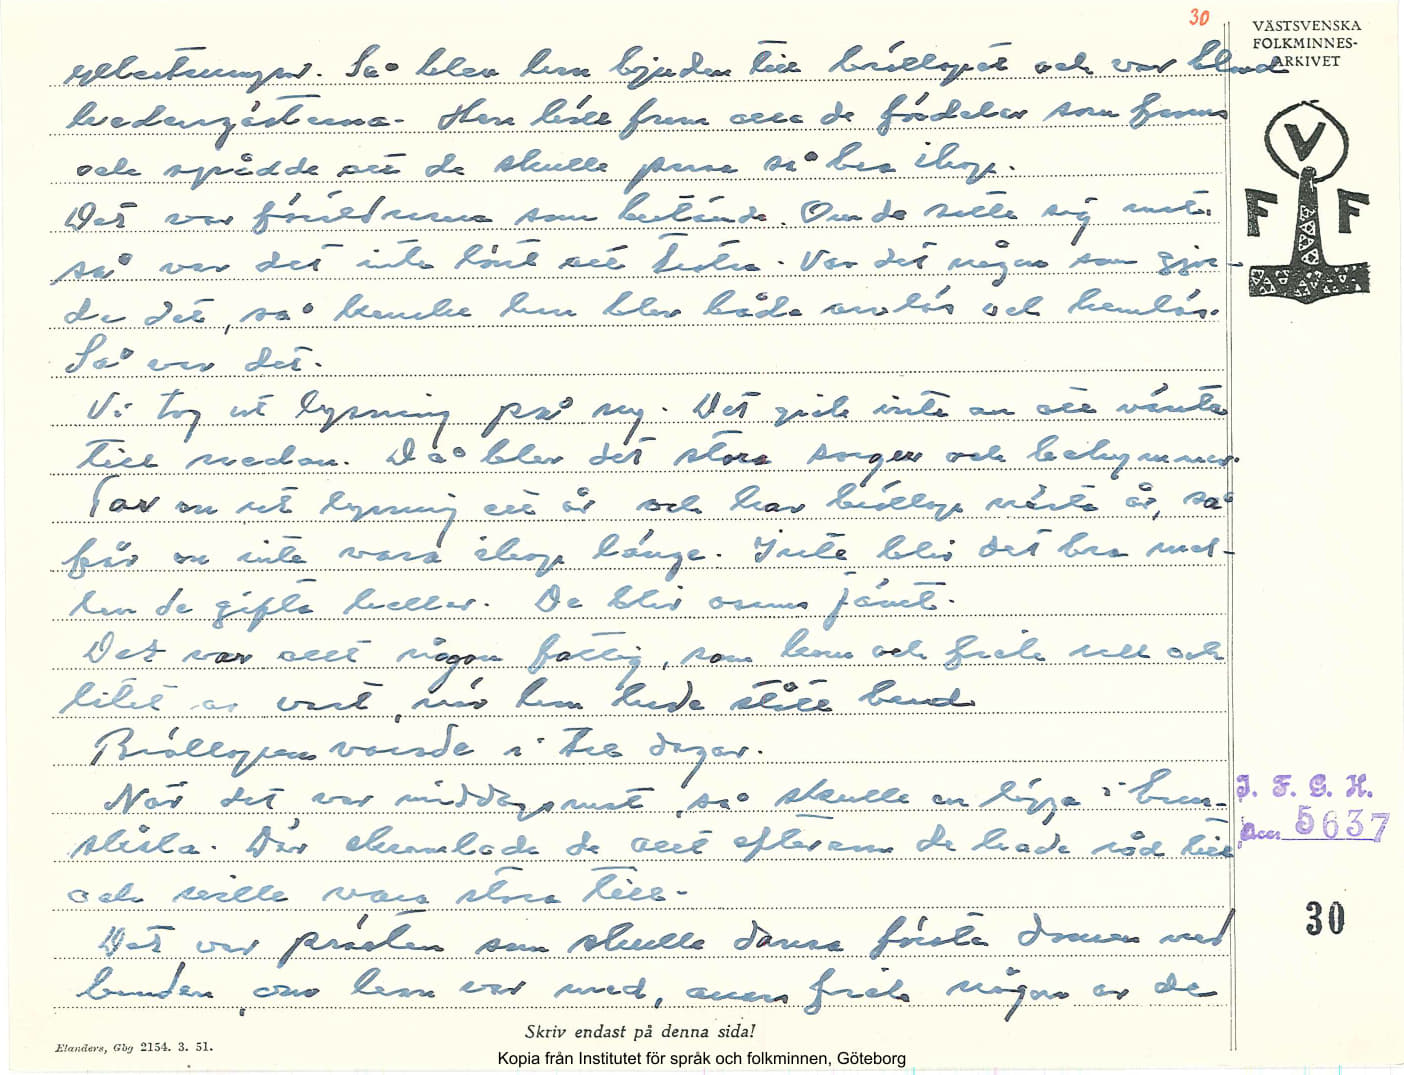 30
VÄSTSVENSKA
FOLKMINNES-
ARKIVET
Så blev han bjuden till bröllopet och var bland
hedersgästerna. Han höll fram alla de fördelar som fanns
och spådde att de skulle passa så bra ihop.
Det var föräldrarna som bestämde. Om de satte sig mot,
så var det inte lönt att fresta. Var det någon som gjor-
de det, så kanske han blev både arvlös och hemlös.
Så var det.
Vi tog ut lysning på ny. Det gick inte an att vänta
till nedan. Då blev det stora sorger och bekymmer.
Tar en ut lysning ett år och har bröllop nästa år, så
får en inte vara ihop länge. Inte blir det bra mel-
lan de gifta heller. De blir osams jämt.
Det var allt någon fattig, som kom och fick säll och
litet av vart, när han hade stått brud
Bröllopen varade i tre dagar.
När det var middagsmat, så skulle en lägga i brud-
skåla. Där skramlade de allt eftersom de hade råd till
och ville vara stora till.
Det var prästen som skulle dansa första dansen med
bruden, om han var med, annars fick någon av de
V
F F
J. F. G. H.
Acc. 5637
30
Skriv endast på denna sida!
Elanders, Gbg 2154. 3. 51.
Kopia från Institutet för språk och folkminnen, Göteborg